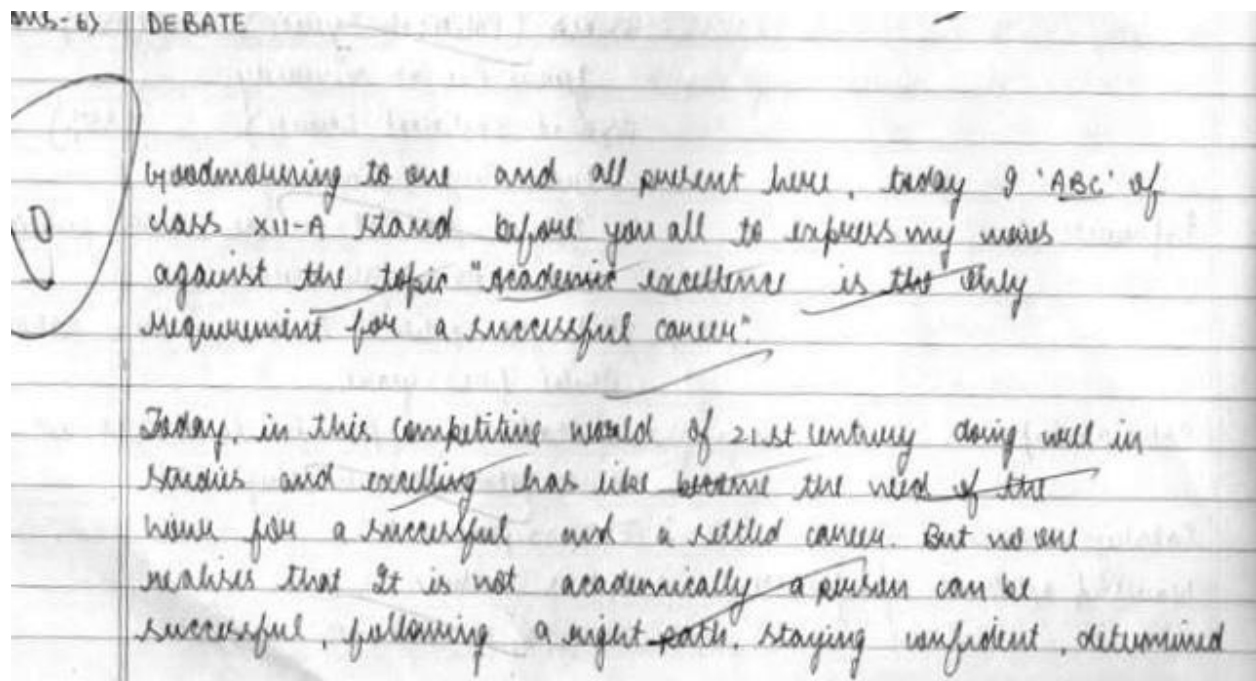 Ans-6) DEBATE
Goodmourning to one and all present here, today I 'ABC' of
class XII-A stand before you all to express my views
against the topic "academic excellence is the only
requirement for a successful career".
Today, in this competitive world of 21st century doing well in
studies and excelling has like become the need of the
hour for a successful and a settled career. But no one
realises that It is not academically a person can be
successful, following a right path, staying confident, determined